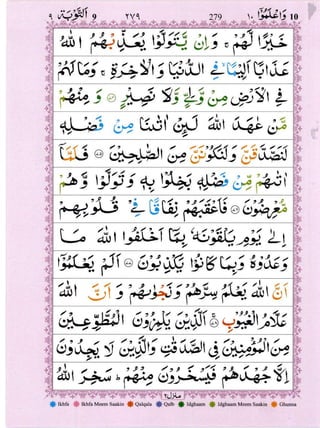 اَلتَّوْبَة ٩ 9 ٢٧٩ 279 وَاعْلَمُوْٓا ١٠ 10
خَيْرًا لَّهُمْ ۚ وَاِنْ يَّتَوَلَّوْا يُعَذِّبْهُمُ اللّٰهُ
عَذَابًا اَلِيْمًا فِى الدُّنْيَا وَالْاٰخِرَةِ ۚ وَمَا لَهُمْ
فِى الْاَرْضِ مِنْ وَّلِيٍّ وَّلَا نَصِيْرٍ ۝ وَمِنْهُمْ
مَّنْ عٰهَدَ اللّٰهَ لَىِٕنْ اٰتٰىنَا مِنْ فَضْلِهٖ
لَنَصَّدَّقَنَّ وَلَنَكُوْنَنَّ مِنَ الصّٰلِحِيْنَ ۝ فَلَمَّآ
اٰتٰىهُمْ مِّنْ فَضْلِهٖ بَخِلُوْا بِهٖ وَتَوَلَّوْا وَّهُمْ
مُّعْرِضُوْنَ ۝ فَاَعْقَبَهُمْ نِفَاقًا فِيْ قُلُوْبِهِمْ
اِلٰى يَوْمِ يَلْقَوْنَهٗ بِمَآ اَخْلَفُوا اللّٰهَ مَا
وَعَدُوْهُ وَبِمَا كَانُوْا يَكْذِبُوْنَ ۝ اَلَمْ يَعْلَمُوْٓا
اَنَّ اللّٰهَ يَعْلَمُ سِرَّهُمْ وَنَجْوٰىهُمْ وَاَنَّ اللّٰهَ
عَلَّامُ الْغُيُوْبِ ۝ اَلَّذِيْنَ يَلْمِزُوْنَ الْمُطَّوِّعِيْنَ
مِنَ الْمُؤْمِنِيْنَ فِى الصَّدَقٰتِ وَالَّذِيْنَ لَا يَجِدُوْنَ
اِلَّا جُهْدَهُمْ فَيَسْخَرُوْنَ مِنْهُمْ ؕ سَخِرَ اللّٰهُ
منزل٢
Ikhfa Ikhfa Meem Saakin Qalqala Qalb Idghaam Idghaam Meem Saakin Ghunna